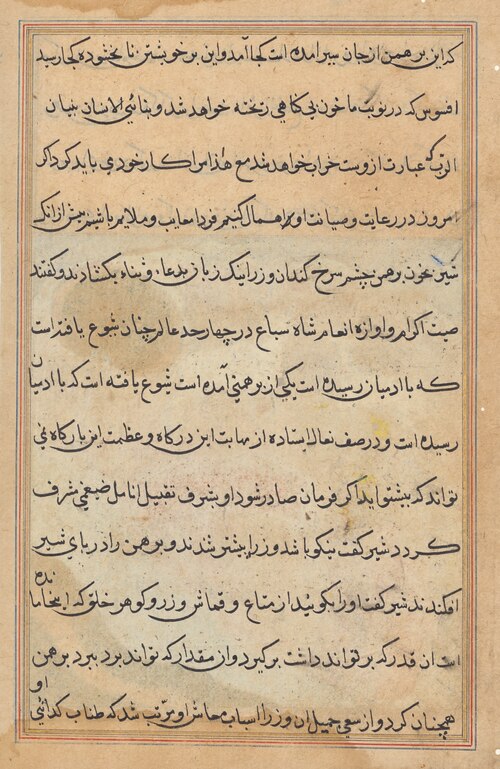 که این برهمن از جان سیر امده است کجا آمد و این بر خویشتن نابخشوده کجا رسید
افسوس که در نوبت ما خون بی کناهی ریخته خواهد شد و بنائی الانسان بنیان
الرب که عبارت ازوست خراب خواهد شد مع هذا مرا کار خودی باید کرد اکر
امروز در رعایت و صیانت او اهمال کنیم فردا معایب و ملایم باشیم پیش از انک
شیر بخون برهمن چشم سرخ کند ان وزرا بنک زبان بدعا و ثناء بکشادند و کفتند
صیت اکرام و اوازه انعام شاه سباع در چهار حد عالم چنان شیوع یافته است
که با ادمیان رسیده است یکی از برهمنی آمده است شیوع یافته است که با ادمیان
رسیده است و در صف نعال استاده از مهابت این درکاه و عظمت این بارکاه نمی
تواند که پیشتر اید اکر فرمان صادر شود او بشرف تقبیل انامل ضیغمی مشرف
کردد شیر کفت نیکو باشد وزرا پیشتر شدند و برهمن را در پای شیر
افکندند شیر کفت او را بکویید از متاع و قماش و زر و کوهر خلق که اینجا مانده
است ان قدر که بر تواند داشت برکیرد و ان مقدار که تواند برد ببرد برهمن
همچنان کرد و از سعی جمیل ان وزرا اسباب معاش او مرتب شد که طناب کدائی او